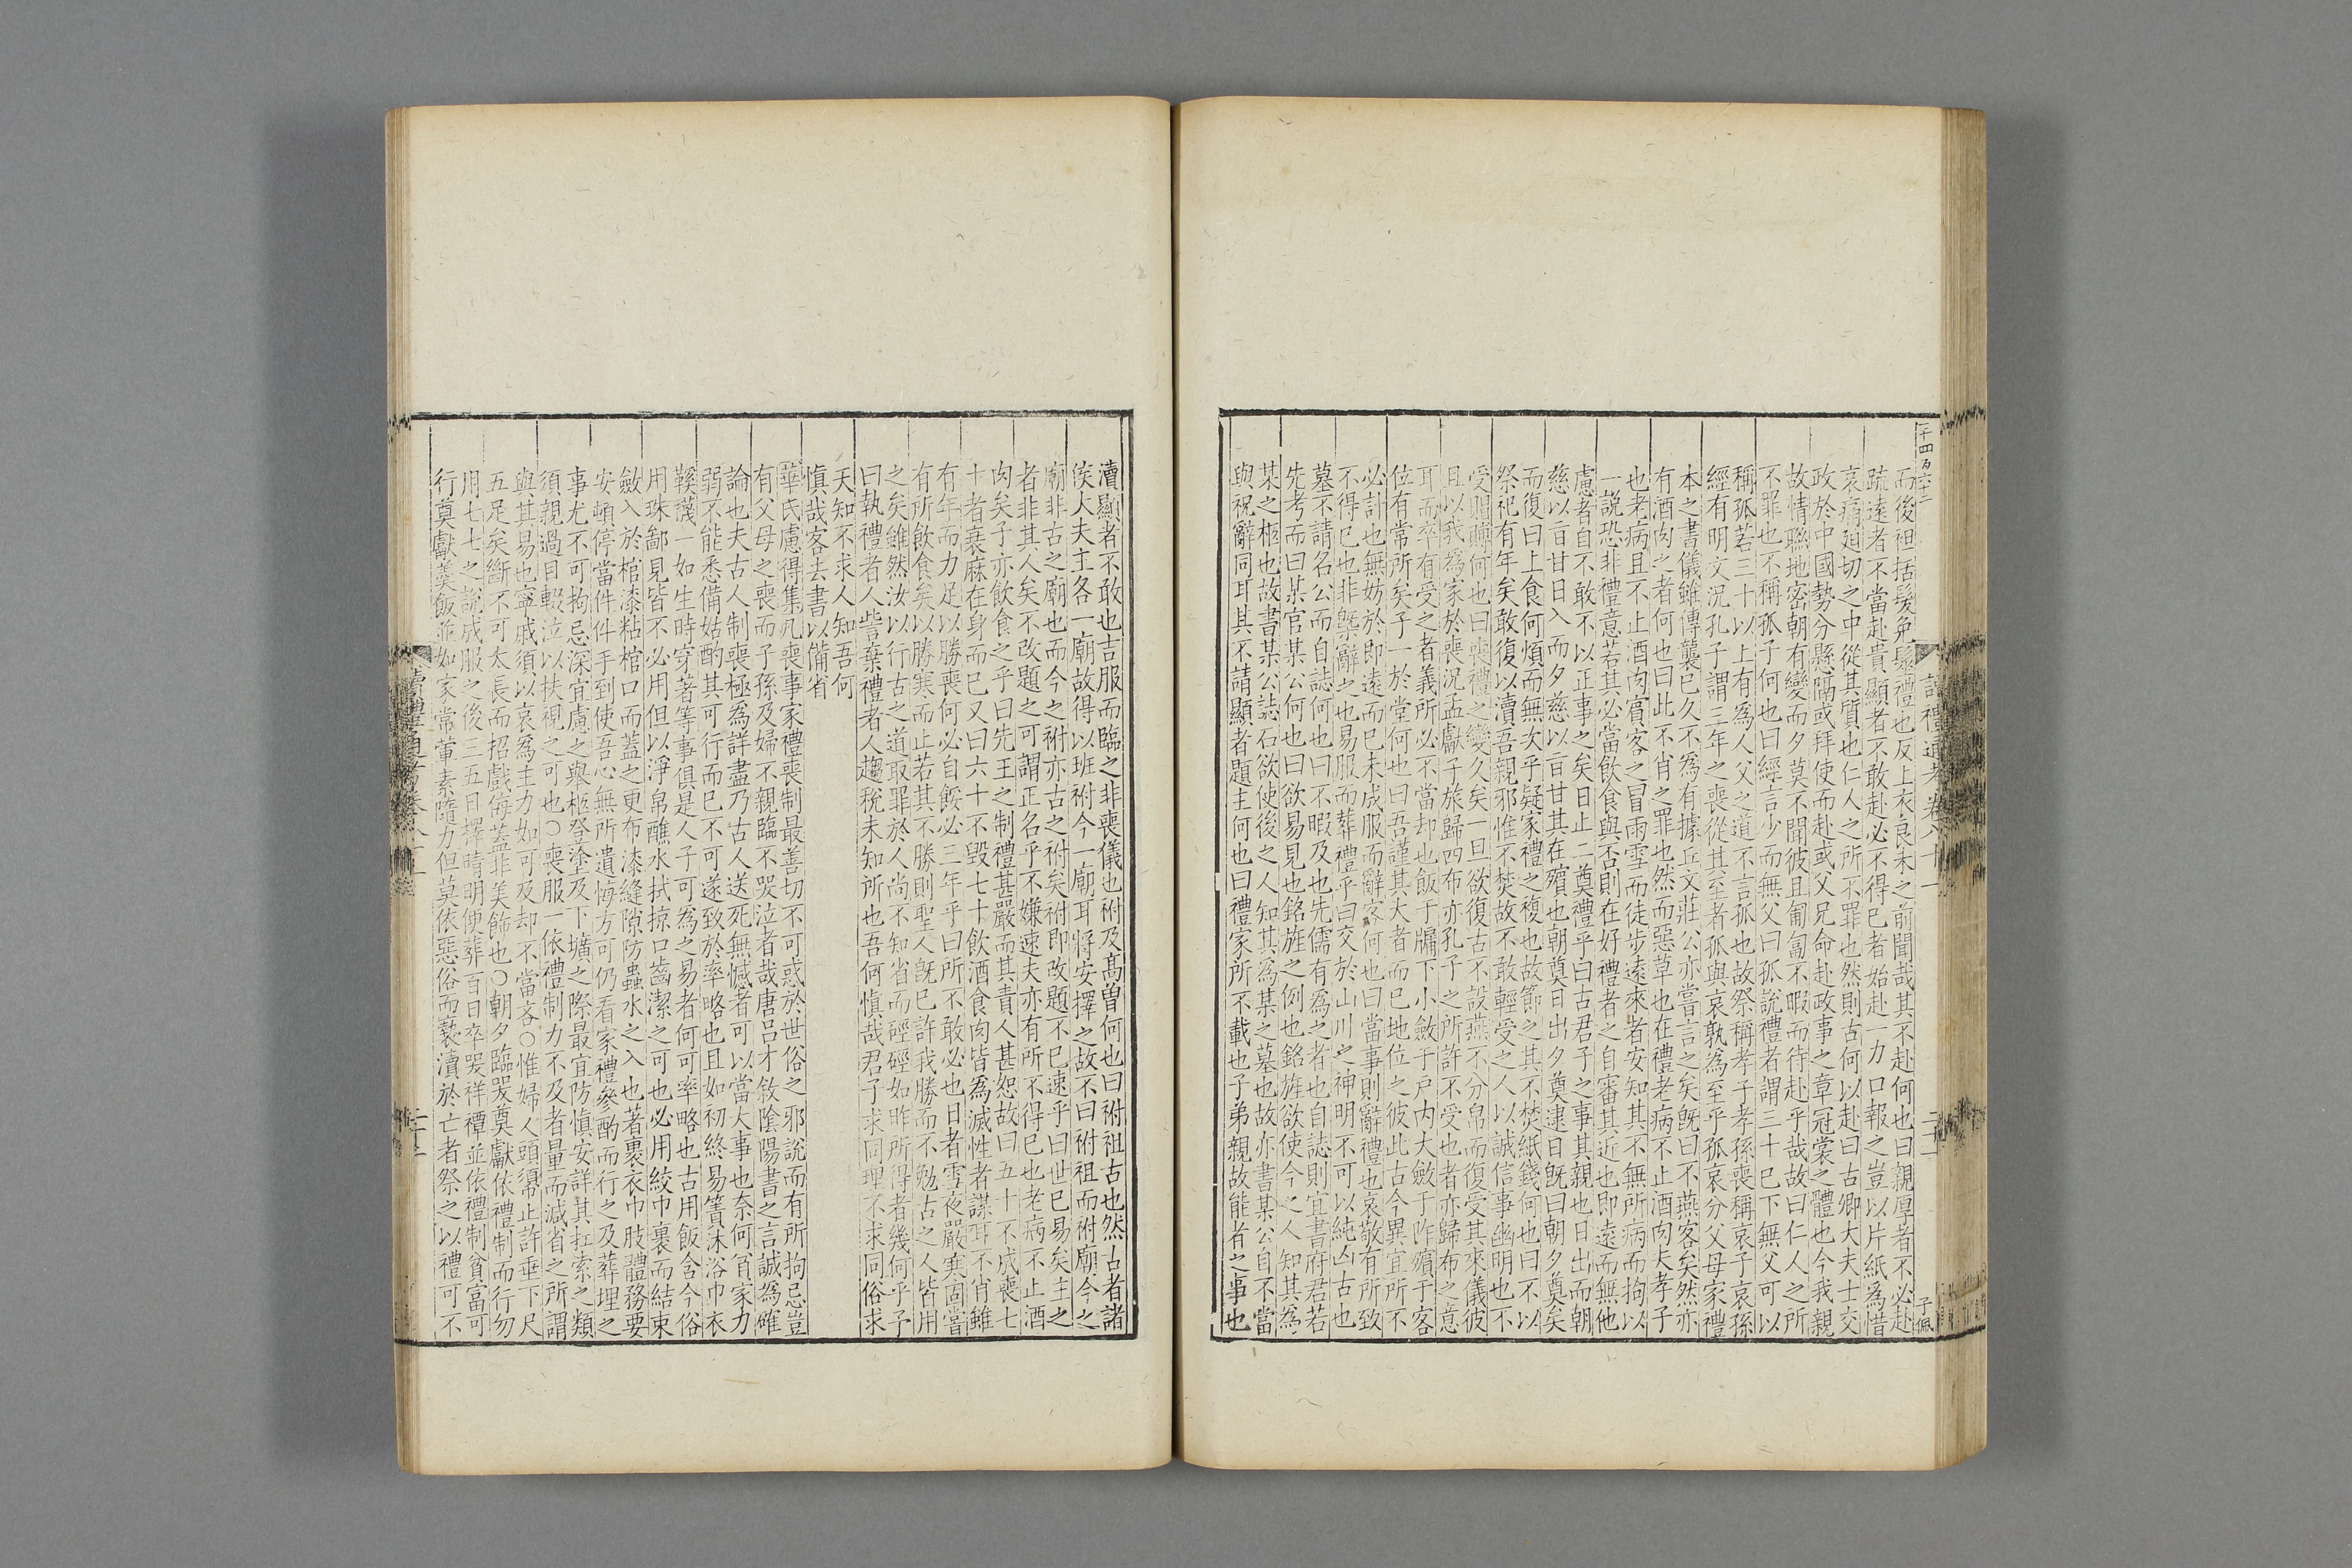 而後袒括髮免髽禮也反上衣良未之前聞哉其不赴何也曰親厚者不必赴
疏遠者不當赴貴顯者不敢赴必不得已者始赴一力口報之豈以片紙為惜
哀痛迫切之中從其質也仁人之所不罪也然則古何以赴曰古卿大夫士交
政於中國勢分懸隔或拜使而赴或父兄命赴政事之章冠裳之體也今我親
故情聯地密朝有變而夕莫不聞彼且匍匐不暇而待赴乎哉故曰仁人之所
不罪也不稱孤子何也曰經言少而無父曰孤說禮者謂三十已下無父可以
稱孤若三十以上有為人父之道不言孤也故祭稱孝子孝孫喪稱哀子哀孫
經有明文況孔子謂三年之喪從其至者孤與哀孰為至乎孤哀分父母家禮
本之書儀雖傳襲已久不為有據丘文莊公亦嘗言之矣既曰不燕客矣然亦
有酒肉之者何也曰此不肖之罪也然而惡草也在禮老病不止酒肉夫孝子
也老病且不止酒肉賓客之冒雨雪而徒步遠來者安知其不無所病而拘以
一說恐非禮意若其必當飲食與否則在好禮者之自審其近也即遠而無他
慮者自不敢不以正事之矣日止二奠禮乎曰古君子之事其親也日出而朝
慈以旨甘日入而夕慈以旨甘其在殯也朝奠日出夕奠逮日既曰朝夕奠矣
而復曰上食何煩而無次乎疑家禮之複也故節之其不焚紙錢何也曰不以
祭祀有年矣敢復以瀆吾親邪惟不焚故不敢輕受之人以誠信事幽明也不
受賵賻何也曰喪禮之變久矣一旦欲復古不設燕不分帛而復受其來儀彼
且以我為家於喪況孟獻子旅歸四布亦孔子之所許不受也者亦歸布之意
耳而卒有受之者義所必不當却也飯于牖下小斂于戶內大斂于阼殯于客
位有常所矣子一於堂何也曰吾謹其大者而已地位之彼此古今異宜所不
必計也無妨於即遠而已未成服而辭客何也曰當事則辭禮也哀敬有所致
不得已也非槩辭之也易服而葬禮乎曰交於山川之神明不可以純凶古也
墓不請名公而自誌何也曰不暇及也先儒有為之者也自誌則宜書府君若
先考而曰某官某公何也曰欲易見也銘旌之例也銘旌欲使今之人知其為
某之柩也故書某公誌石欲使後之人知其為某之墓也故亦書某公自不當
與祝辭同耳其不請顯者題主何也曰禮家所不載也子弟親故能者之事也
瀆顯者不敢也吉服而臨之非喪儀也祔及高曾何也曰祔祖古也然古者諸
侯大夫主各一廟故得以班祔今一廟耳將安擇之故不曰祔祖而祔廟今之
廟非古之廟也而今之祔亦古之祔矣祔即改題不已速乎曰世已易矣主之
者非其人矣不改題之可謂正名乎不嫌速夫亦有所不得已也老病不止酒
肉矣子亦飲食之乎曰先王之制禮甚嚴而其責人甚恕故曰五十不成喪七
十者衰麻在身而已又曰六十不毀七十飲酒食肉皆為滅性者謀耳不肖雖
有年而力足以勝喪何必自餒必三年乎曰所不敢必也日者雪夜嚴寒固嘗
有所飲食矣以勝寒而止若其不勝則聖人既已許我勝而不勉古之人皆用
之矣雖然汝以行古之道取罪於人尚不知省而硜硜如昨所得者幾何乎予
曰執禮者人訾棄禮者人趨稅未知所也吾何慎哉君子求同理不求同俗求
天知不求人知吾何
慎哉客去書以備省
華氏慮得集凡喪事家禮喪制最善切不可惑於世俗之邪說而有所拘忌豈
有父母之喪而子孫及婦不親臨不哭泣者哉唐呂才敘陰陽書之言誠為確
論也夫古人制喪極為詳盡乃古人送死無憾者可以當大事也奈何貧家力
弱不能悉備姑酌其可行而已不可遂致於率略也且如初終易簀沐浴巾衣
鞵襪一如生時穿著等事俱是人子可為之易者何可率略也古用飯含今俗
用珠鄙見皆不必用但以淨帛醮水拭掠口齒潔之可也必用絞巾裹而結束
斂入於棺漆粘棺口而蓋之更布漆縫隙防蟲水之入也著裹衣巾肢體務要
安頓停當件件手到使吾心無所遺悔方可仍看家禮參酌而行之及葬埋之
事尤不可拘忌深宜慮之舉柩登塗及下壙之際最宜防慎安詳其扛索之類
須親過目輟泣以扶視之可也○喪服一依禮制力不及者量而減省之所謂
與其易也寧戚須以哀為主力如可及却不當吝○惟婦人頭𢄼止許垂下尺
五足矣斷不可太長而招戲侮蓋非美飾也○朝夕臨哭奠獻依禮制而行勿
用七七之說成服之後三五日擇晴明便葬百日卒哭祥禫並依禮制貧富可
行奠獻羹飯並如家常葷素隨力但莫依惡俗而褻瀆於亡者祭之以禮可不